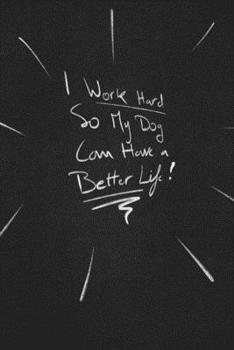 I Work Hard
So My Dog
Can Have a
Better Life!